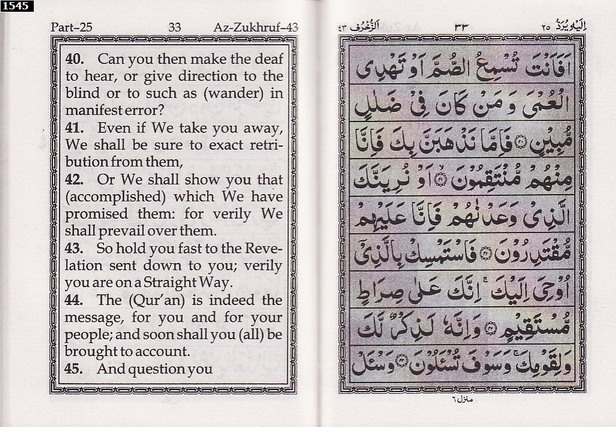 1545
Part–25 33 Az-Zukhruf–43
40. Can you then make the deaf
to hear, or give direction to the
blind or to such as (wander) in
manifest error?
41. Even if We take you away,
We shall be sure to exact retri-
bution from them,
42. Or We shall show you that
(accomplished) which We have
promised them: for verily We
shall prevail over them.
43. So hold you fast to the Reve-
lation sent down to you; verily
you are on a Straight Way.
44. The (Qur'an) is indeed the
message, for you and for your
people; and soon shall you (all) be
brought to account.
45. And question you
اِلَيْهِ يُرَدُّ ٢٥ ٣٣ اَلزُّخْرُف ٤٣
اَفَاَنْتَ تُسْمِعُ الصُّمَّ اَوْ تَهْدِى
الْعُمْىَ وَ مَنْ كَانَ فِىْ ضَلٰلٍ
مُّبِيْنٍ ۝ فَاِمَّا نَذْهَبَنَّ بِكَ فَاِنَّا
مِنْهُمْ مُّنْتَقِمُوْنَ ۝ اَوْ نُرِيَنَّكَ
الَّذِىْ وَعَدْنٰهُمْ فَاِنَّا عَلَيْهِمْ
مُّقْتَدِرُوْنَ ۝ فَاسْتَمْسِكْ بِالَّذِىْٓ
اُوْحِىَ اِلَيْكَ ۚ اِنَّكَ عَلٰى صِرَاطٍ
مُّسْتَقِيْمٍ ۝ وَاِنَّهٗ لَذِكْرٌ لَّكَ
وَلِقَوْمِكَ ۚ وَسَوْفَ تُسْئَلُوْنَ ۝ وَسْئَلْ
منزل ٦